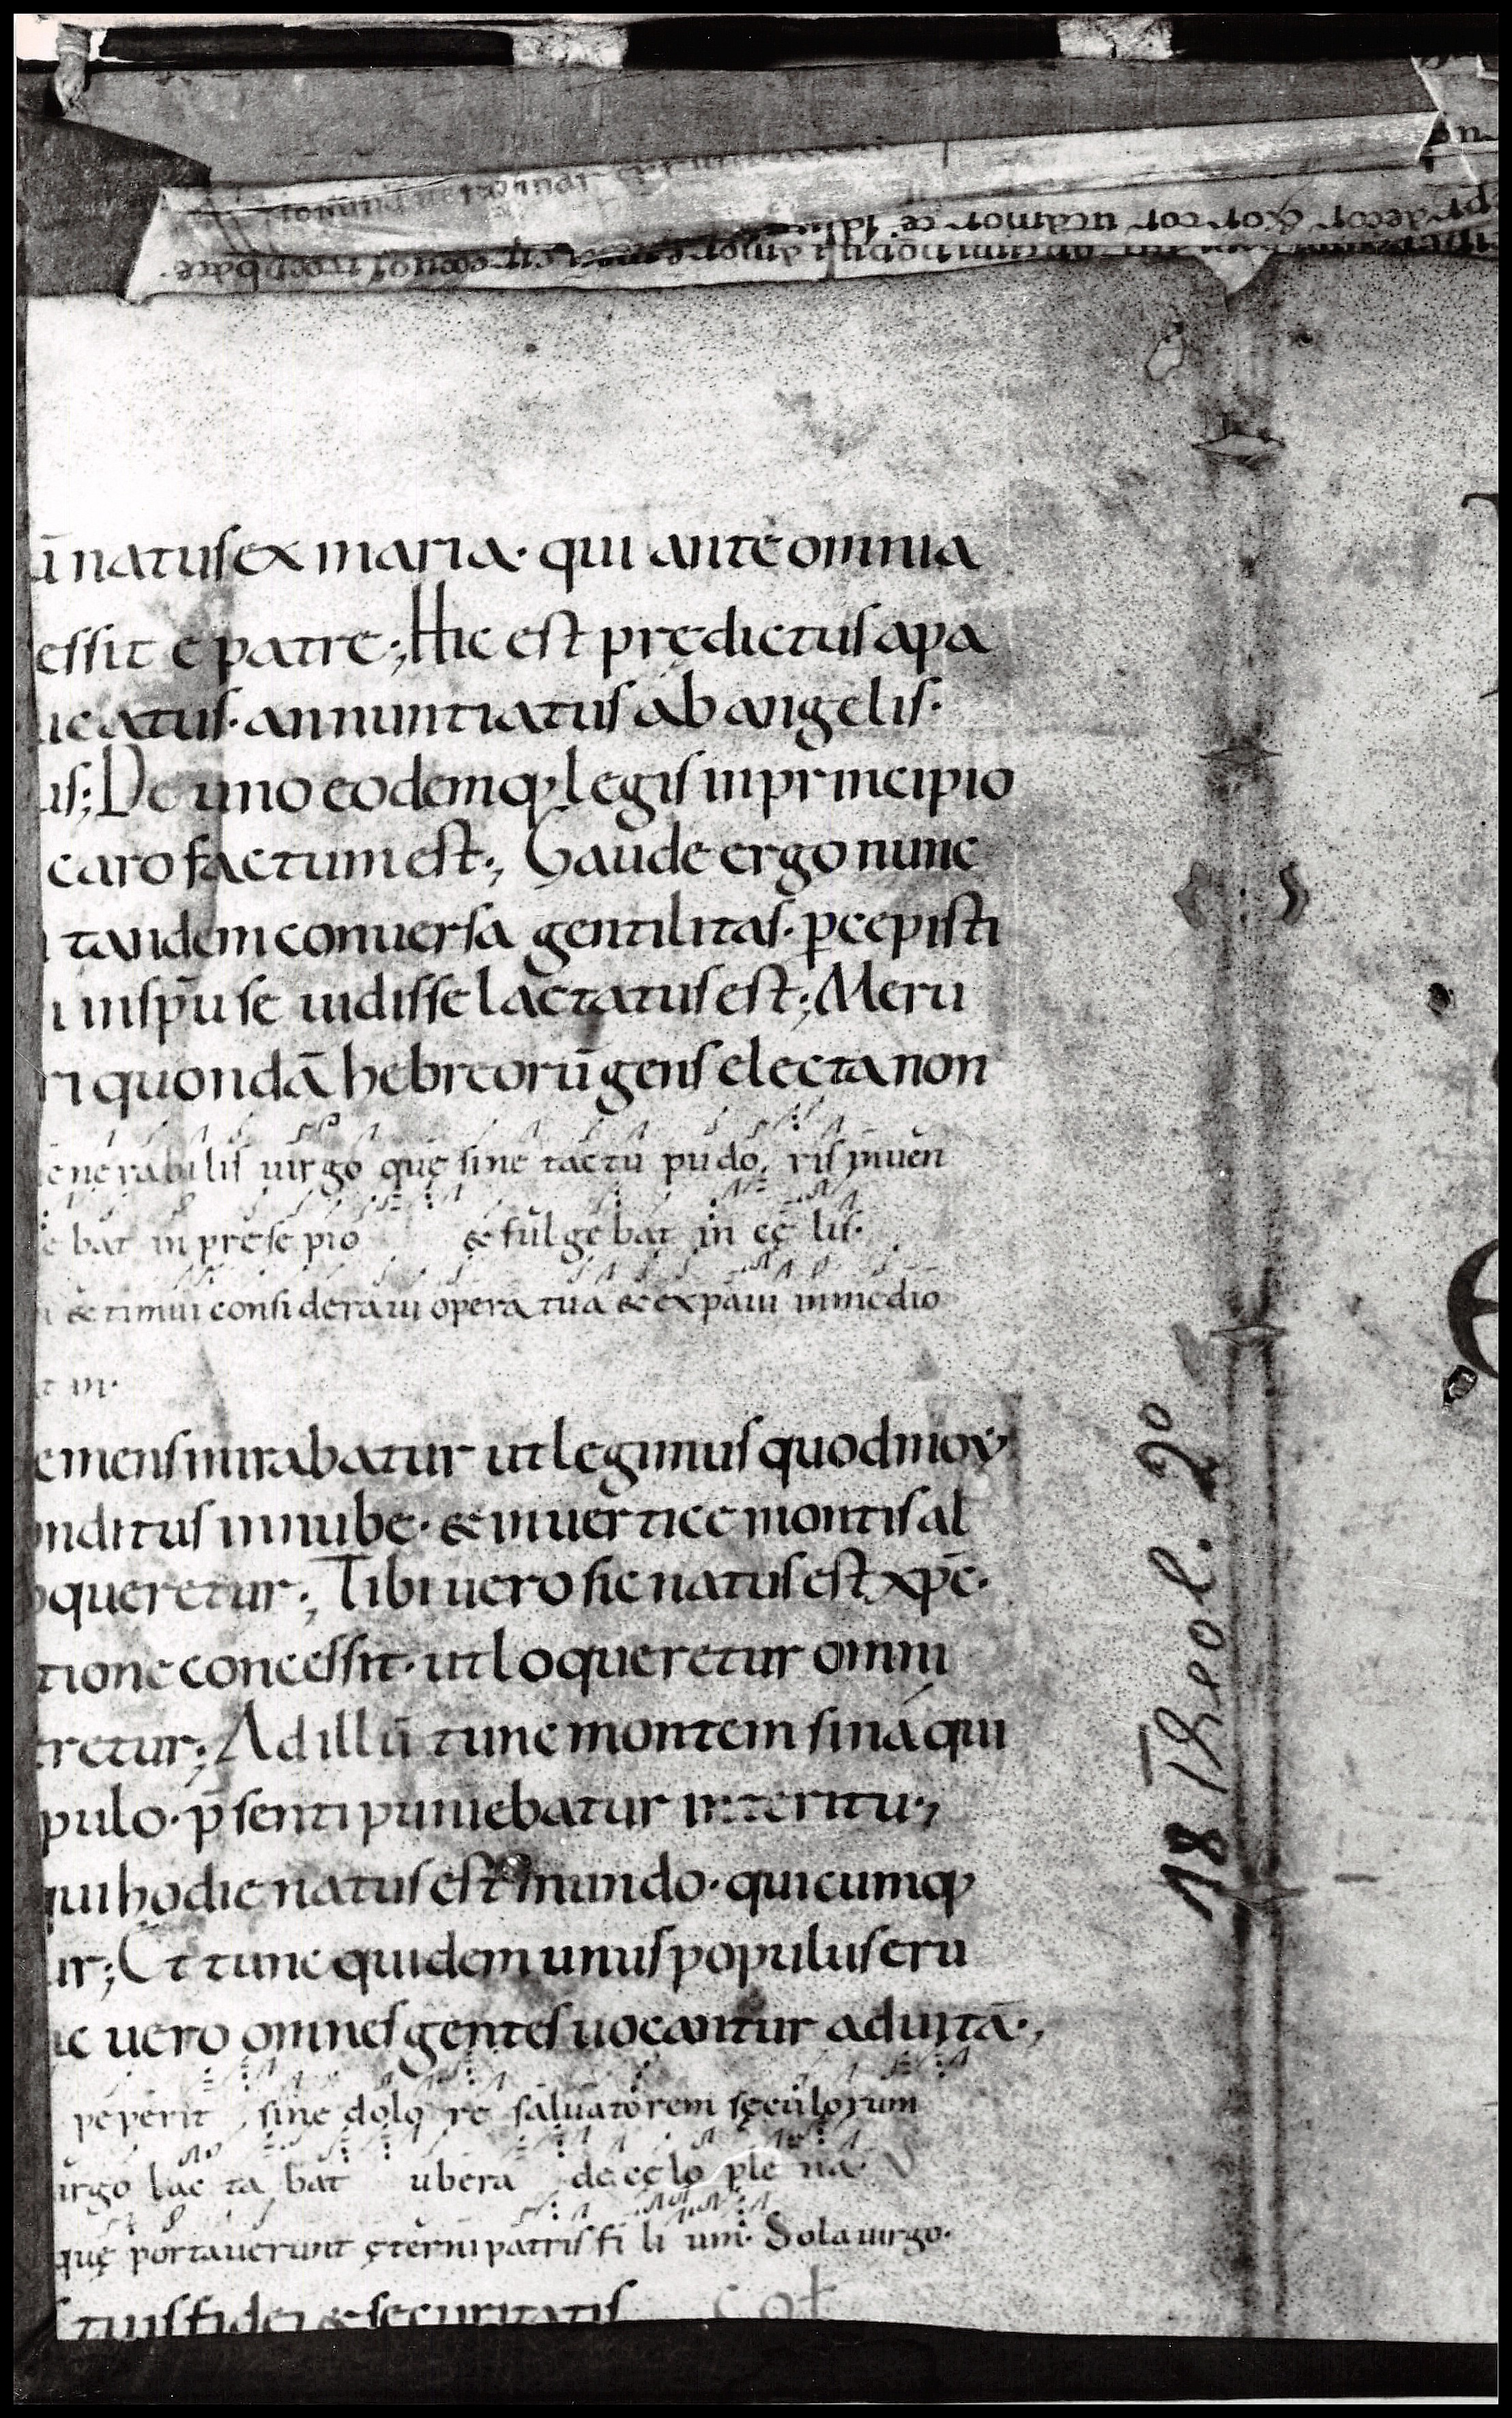 ū natus ex maria· qui ante omnia
essit e patre·; Hic est prędictus a pa
atus· annuntiatus ab angelis·
us·; De uno eodemq; legis in principio
caro factum est·; Gaude ergo nunc
tandem conuersa gentilitas· pcepisti
i in spū se uidisse lactatus est·; Meru
ri quondā hebreorū gens electa non
enerabilis uirgo quę sine tactu pudoris inuen
e bat in presepio & fulgebat in cęlis·
i & timui consideraui opera tua & expaui in medio
t in·
e mens mirabatur ut legimus quod moy
onditus in nube· & in uertice montis al
oqueretur·; Tibi uero sic natus est xpc̄·
tione concessit· ut loqueretur omni
retur·; Ad illū tunc montem siná qui
pulo· p̄senti puniebatur interitu·;
qui hodie natus est mundo· quicumq;
ur·; Et tunc quidem unus populus eru
c uero omnes gentes uocantur ad uitā·;
peperit sine dolore saluatorem sęculorum
irgo lactabat ubera de cęlo plena· V
quę portauerunt ęterni patris filium· Sola uirgo·
s tuis fidei & securitatis
18 Theol. 2º